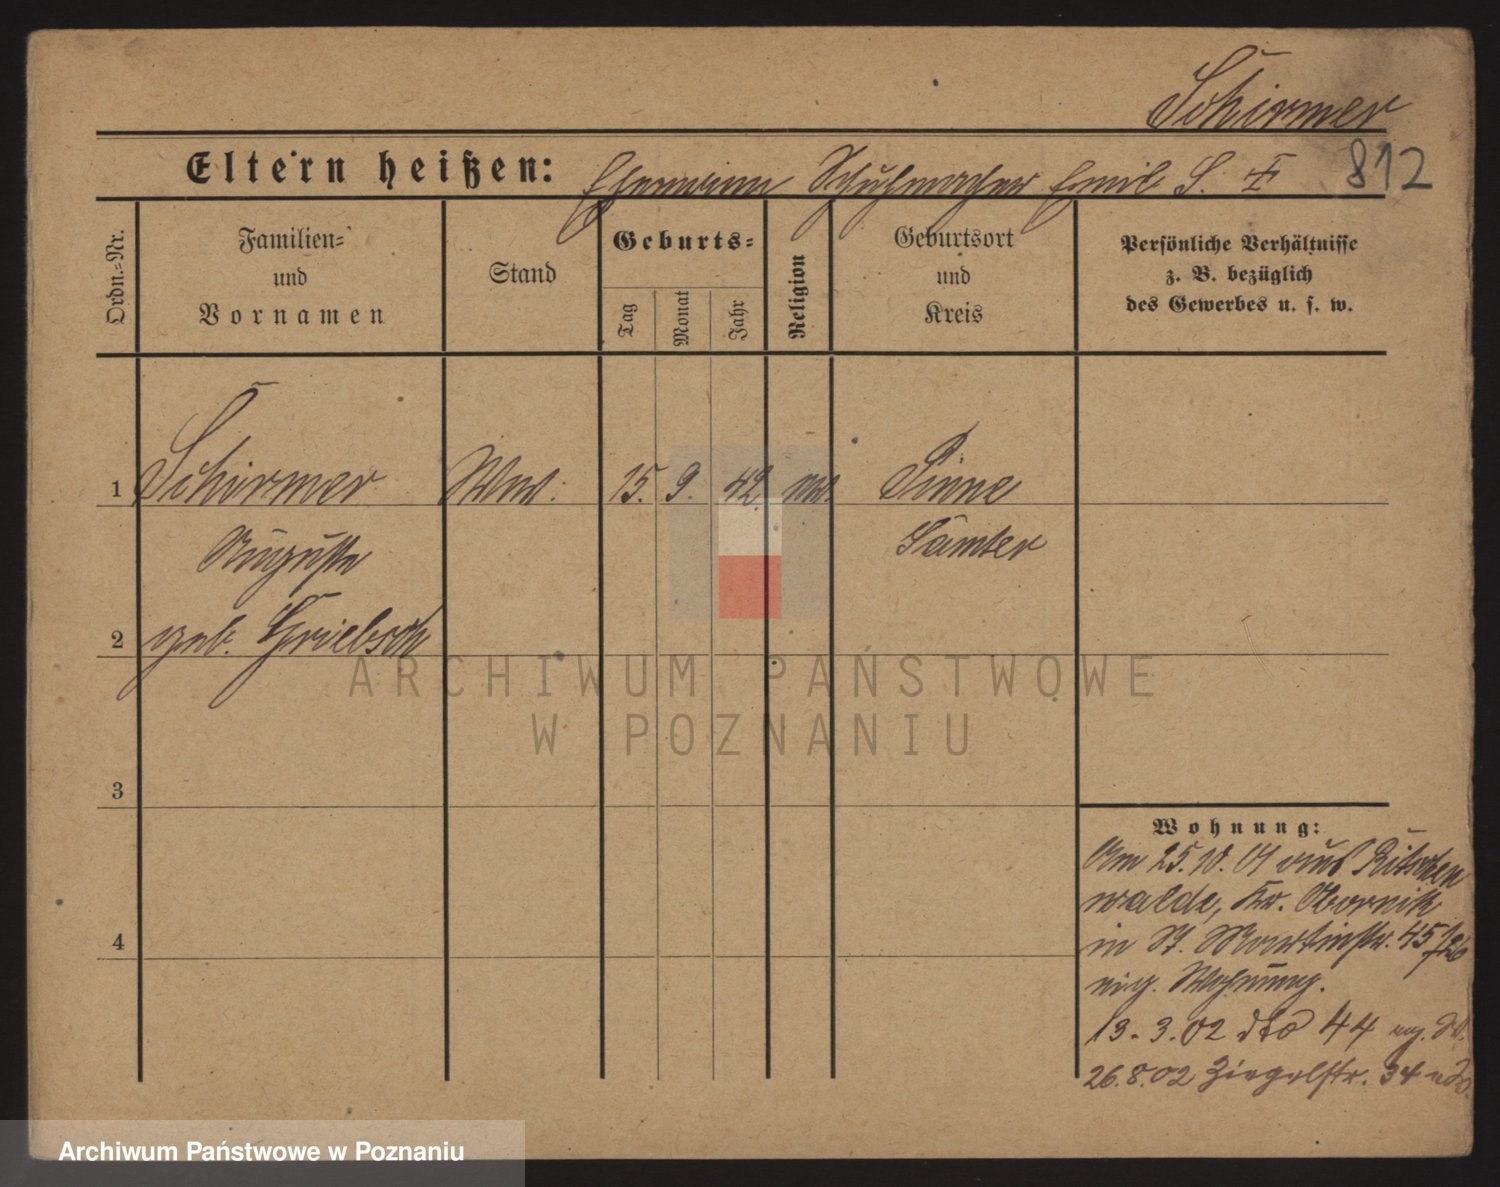 Schirmer
Eltern heißen: Ehemann Schuhmacher Emil S. 812
Ordn.=Nr.
Familien=
und
Vornamen
Stand
Geburts=
Tag
Monat
Jahr
Religion
Geburtsort
und
Kreis
Persönliche Verhältnisse
z. B. bezüglich
des Gewerbes u. s. w.
1 Schirmer Ww. 15. 9. 42. Pinne
Auguste Samter
2 geb. Griebsch
3
4
Wohnung:
Am 25. 10. 01 aus Ritschen
walde, Kr. Obornik
in St. Martinstr. 45
eig. Wohnung.
13. 3. 02 dto 44
26. 8. 02 Ziegelstr. 34
ARCHIWUM PAŃSTWOWE
W POZNANIU
Archiwum Państwowe w Poznaniu